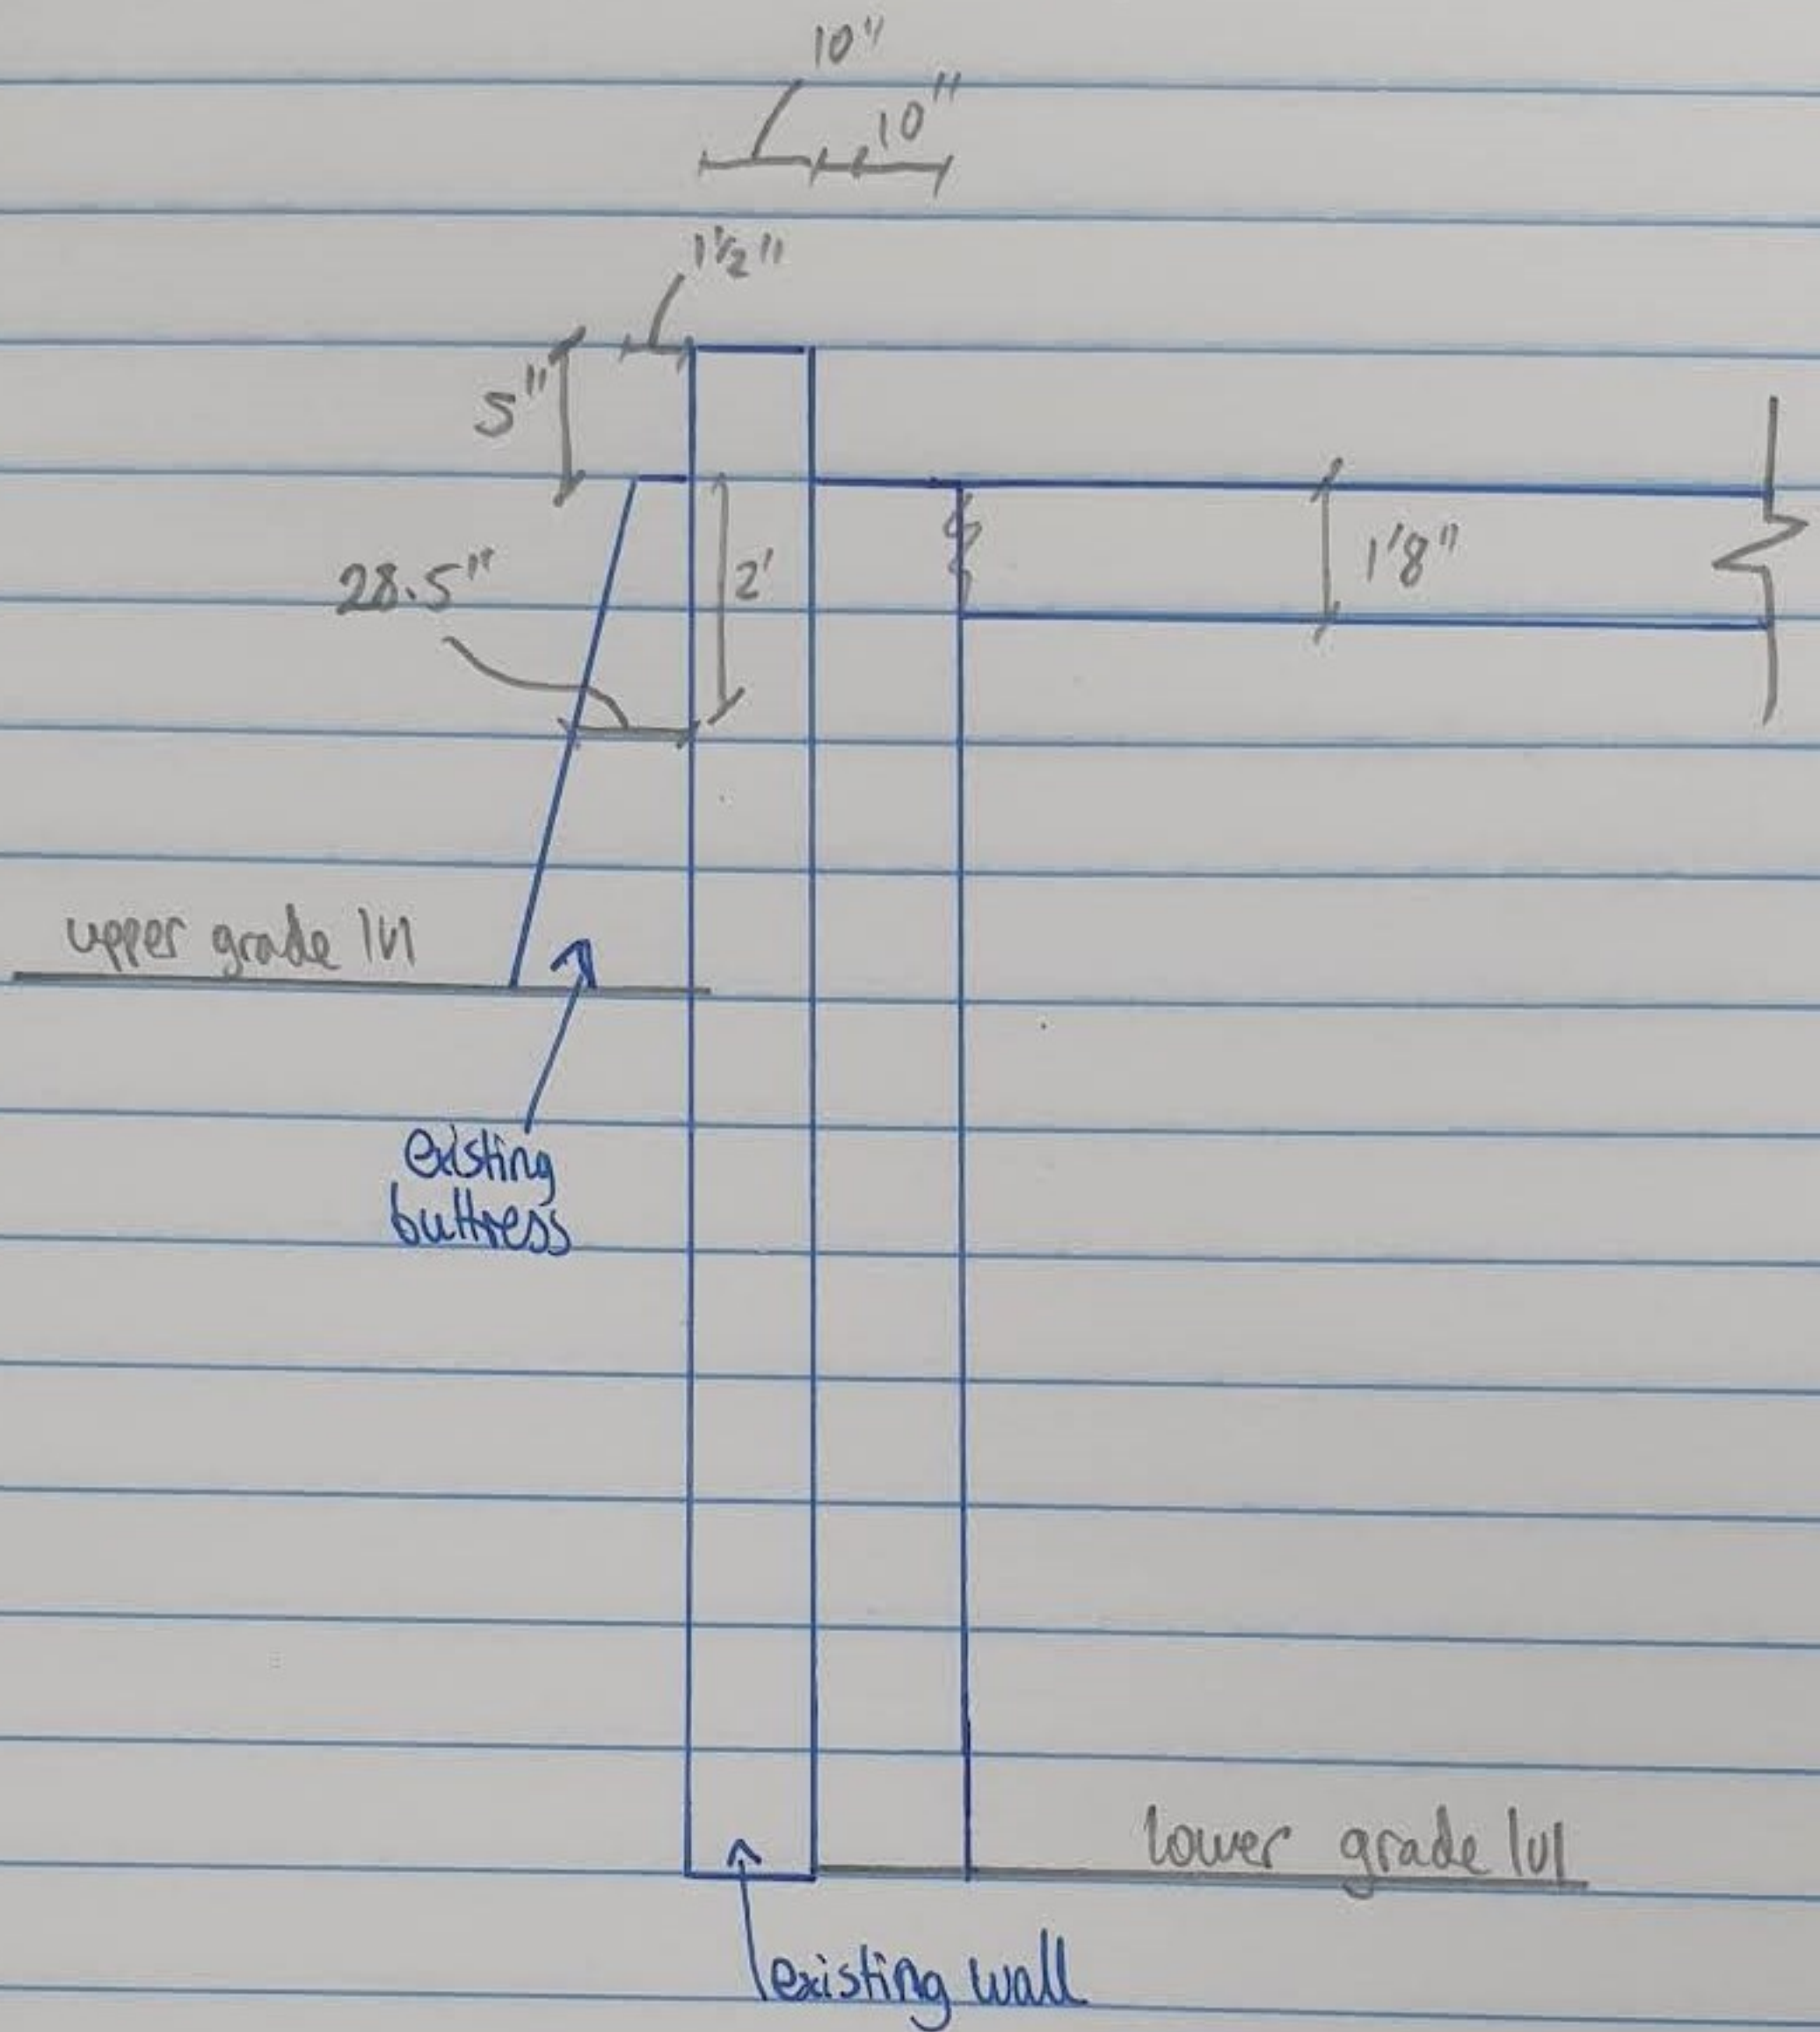 10"
10"
1½"
5"
28.5"
2'
1'8"
upper grade lvl
existing
buttress
lower grade lvl
existing wall